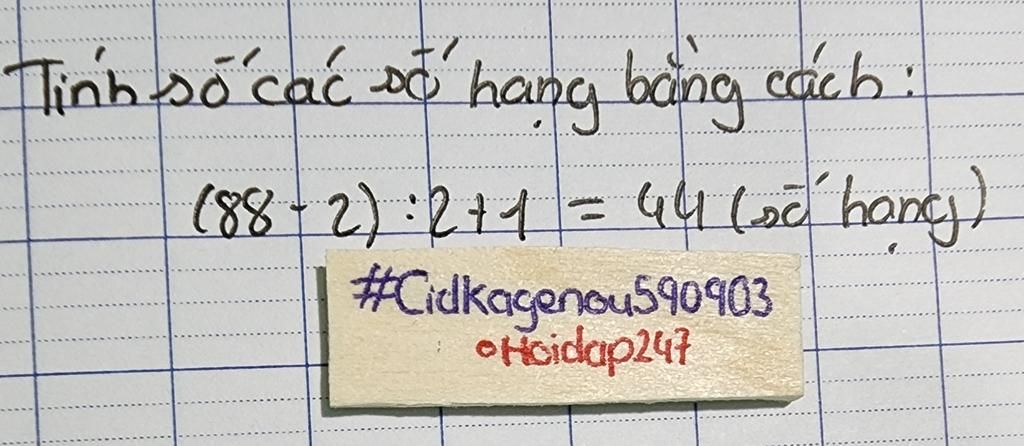 Tính số các số hạng bằng cách:
(88 - 2) : 2 + 1 = 44 (số hạng)
#Cidkagenou590903
•Hoidap247